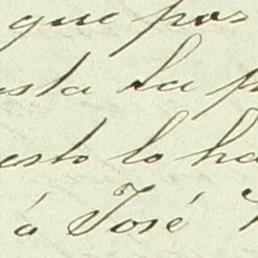 que por
esta la p
esto lo ha
á José